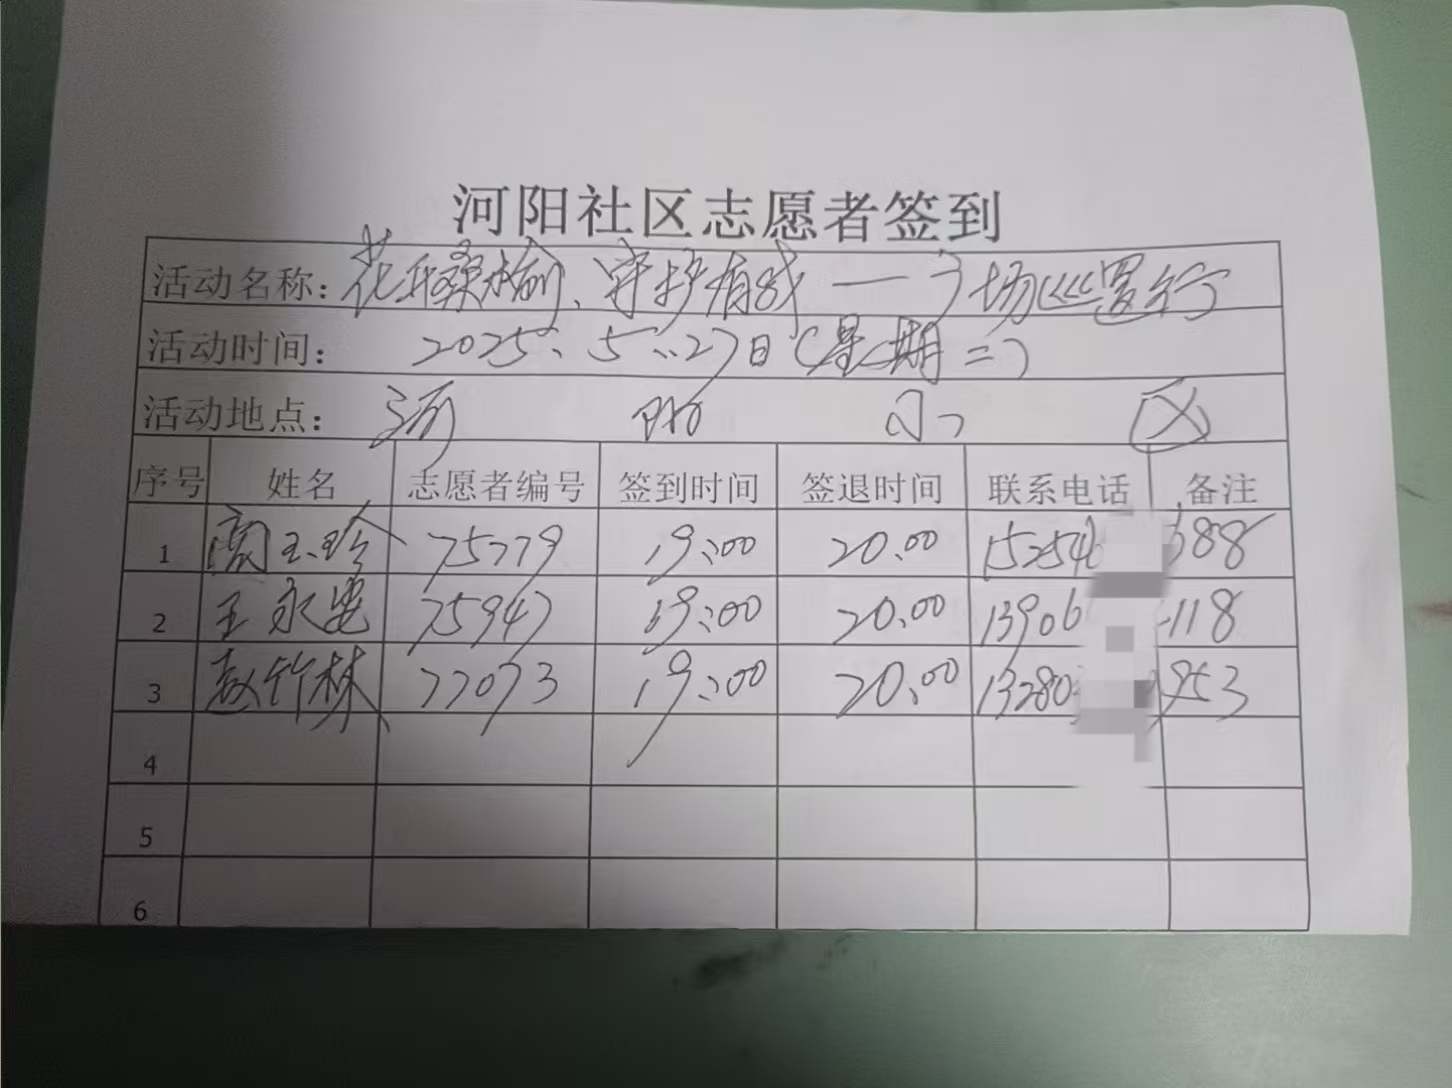 河阳社区志愿者签到
活动名称：花样桑榆、守护有我 — 广场巡逻行
活动时间： 2025、5、27日（星期二）
活动地点： 河 阳 小 区
序号 姓名 志愿者编号 签到时间 签退时间 联系电话 备注
1 周玉珍 75779 19:00 20:00 15254 688
2 王永 75947 19:00 20:00 13906 118
3 赵竹林 77073 19:00 20:00 13280 953
4
5
6